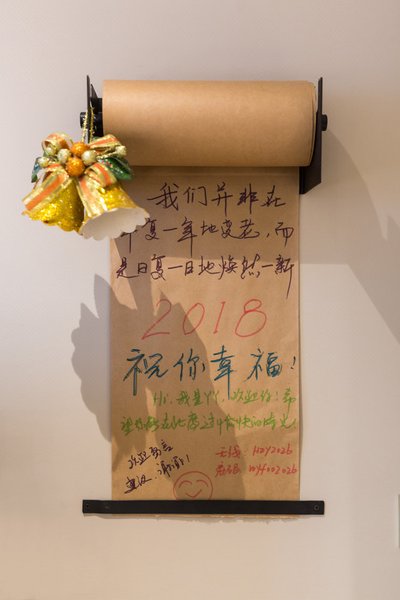 我们并非在
年复一年地变老,而
是日复一日地焕然一新
2018
祝你幸福!
Hi,我是丫丫,欢迎你!希
望你能在此度过愉快的时光!
欢迎留言
建议,谢谢!
无线: H2Y2026